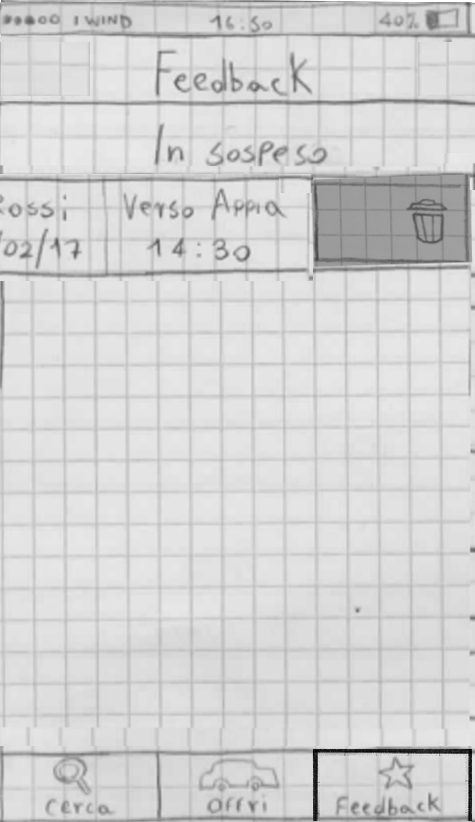 I WIND 16:50 40%
Feedback
In sospeso
ossi Verso Appia
/02/17 14:30
Cerca Offri Feedback